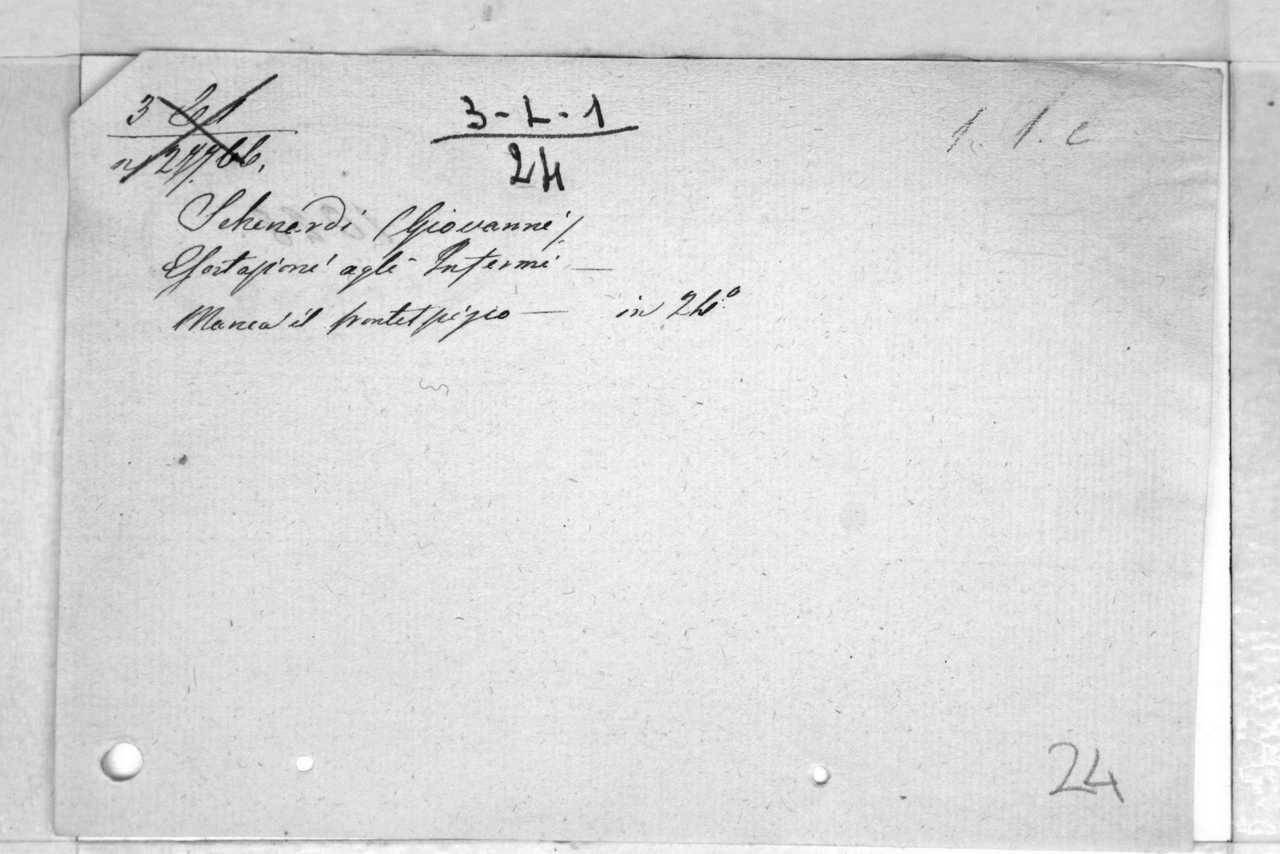 3-L-1
24
Schenardi (Giovanni)
Esortazioni agli Infermi —
Manca il frontespizio — in 24°
24